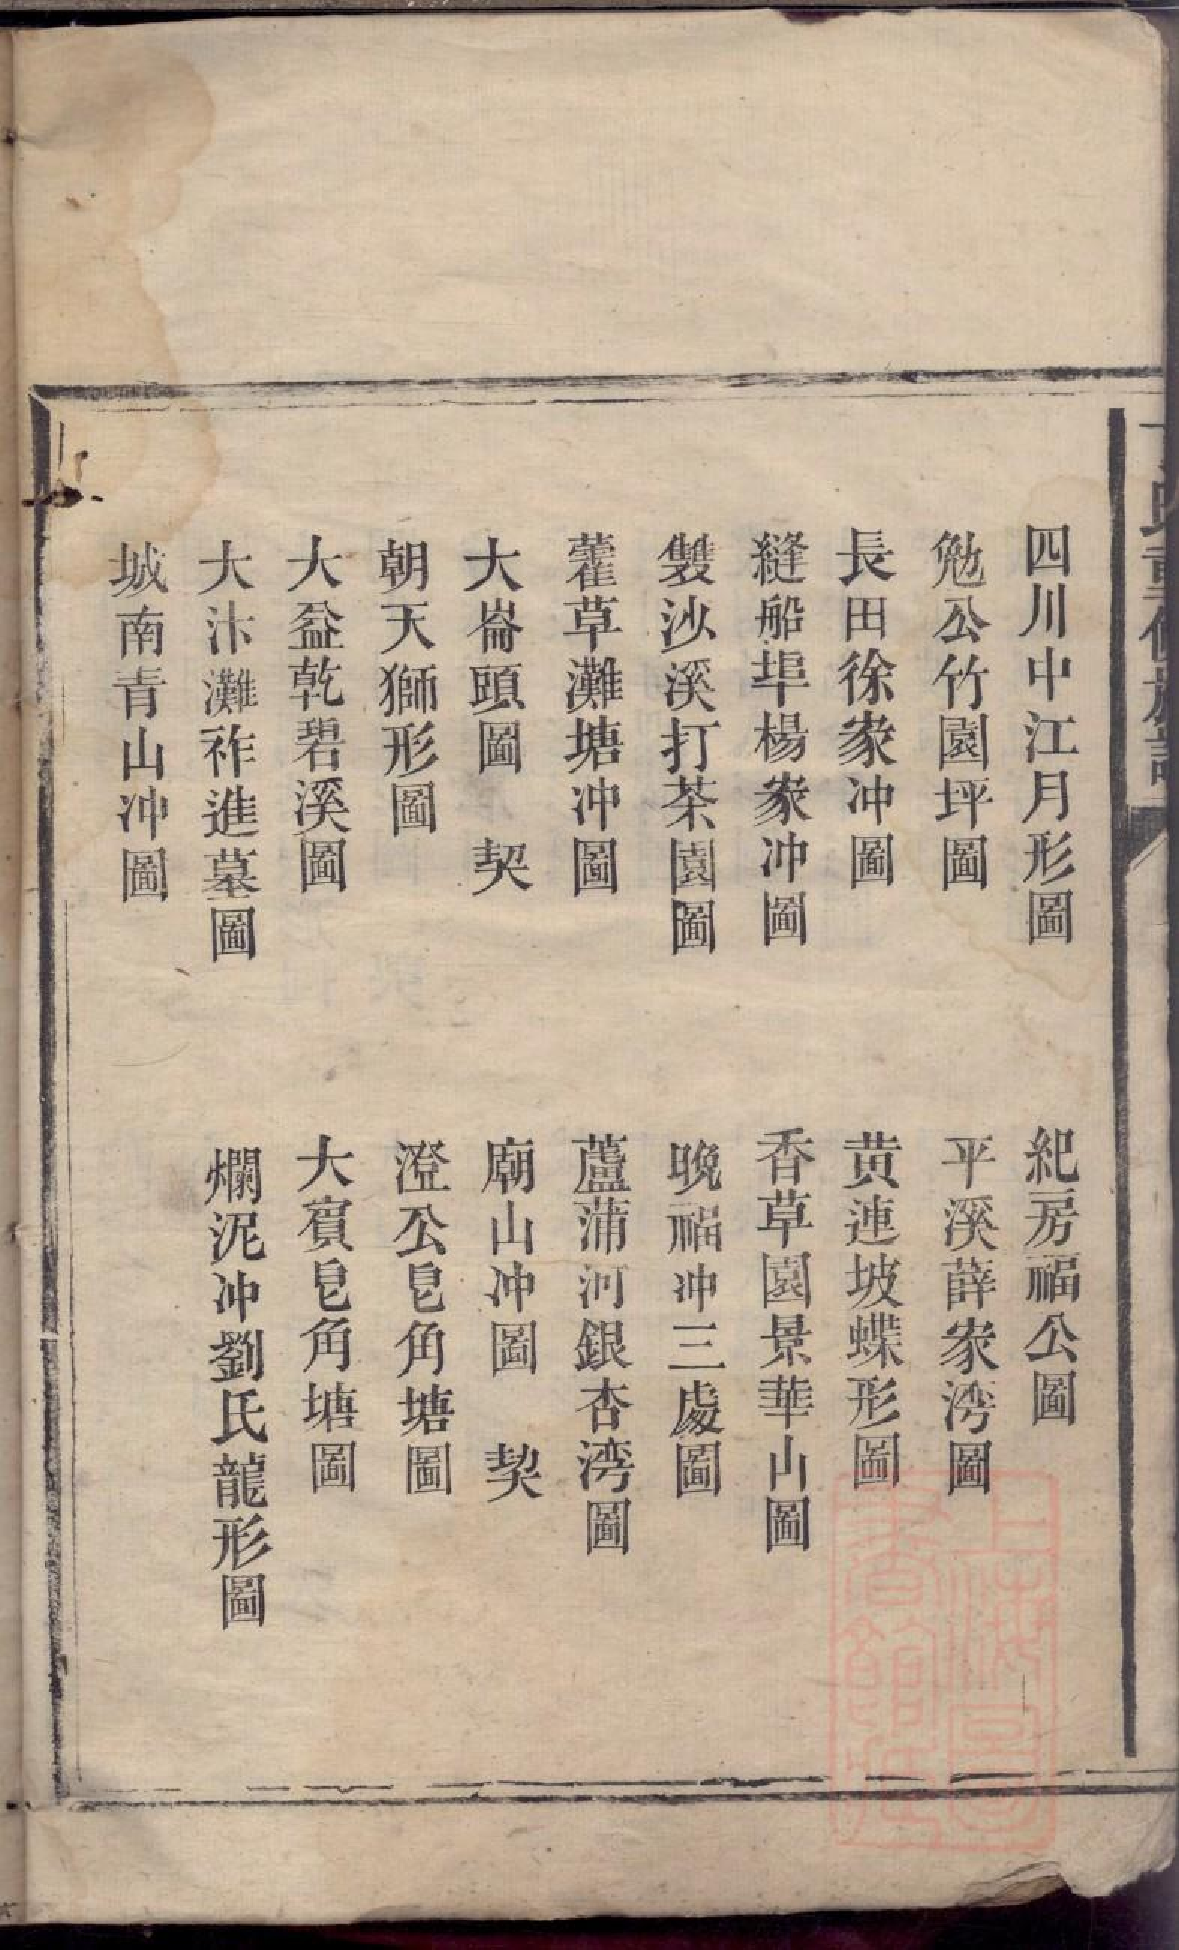 四川中江月形圖
紀房福公圖
勉公竹園坪圖
平溪薛家湾圖
長田徐家冲圖
黄連坡蝶形圖
縫船埠楊家冲圖
香草園景華山圖
雙沙溪打茶園圖
晚福冲三處圖
藿草灘塘冲圖
蘆蒲河銀杏湾圖
大崙頭圖 契
廟山冲圖 契
朝天獅形圖
澄公皂角塘圖
大益乾碧溪圖
大賓皂角塘圖
大汴灘祚進墓圖
爛泥冲劉氏龍形圖
城南青山冲圖
上海圖
書館藏